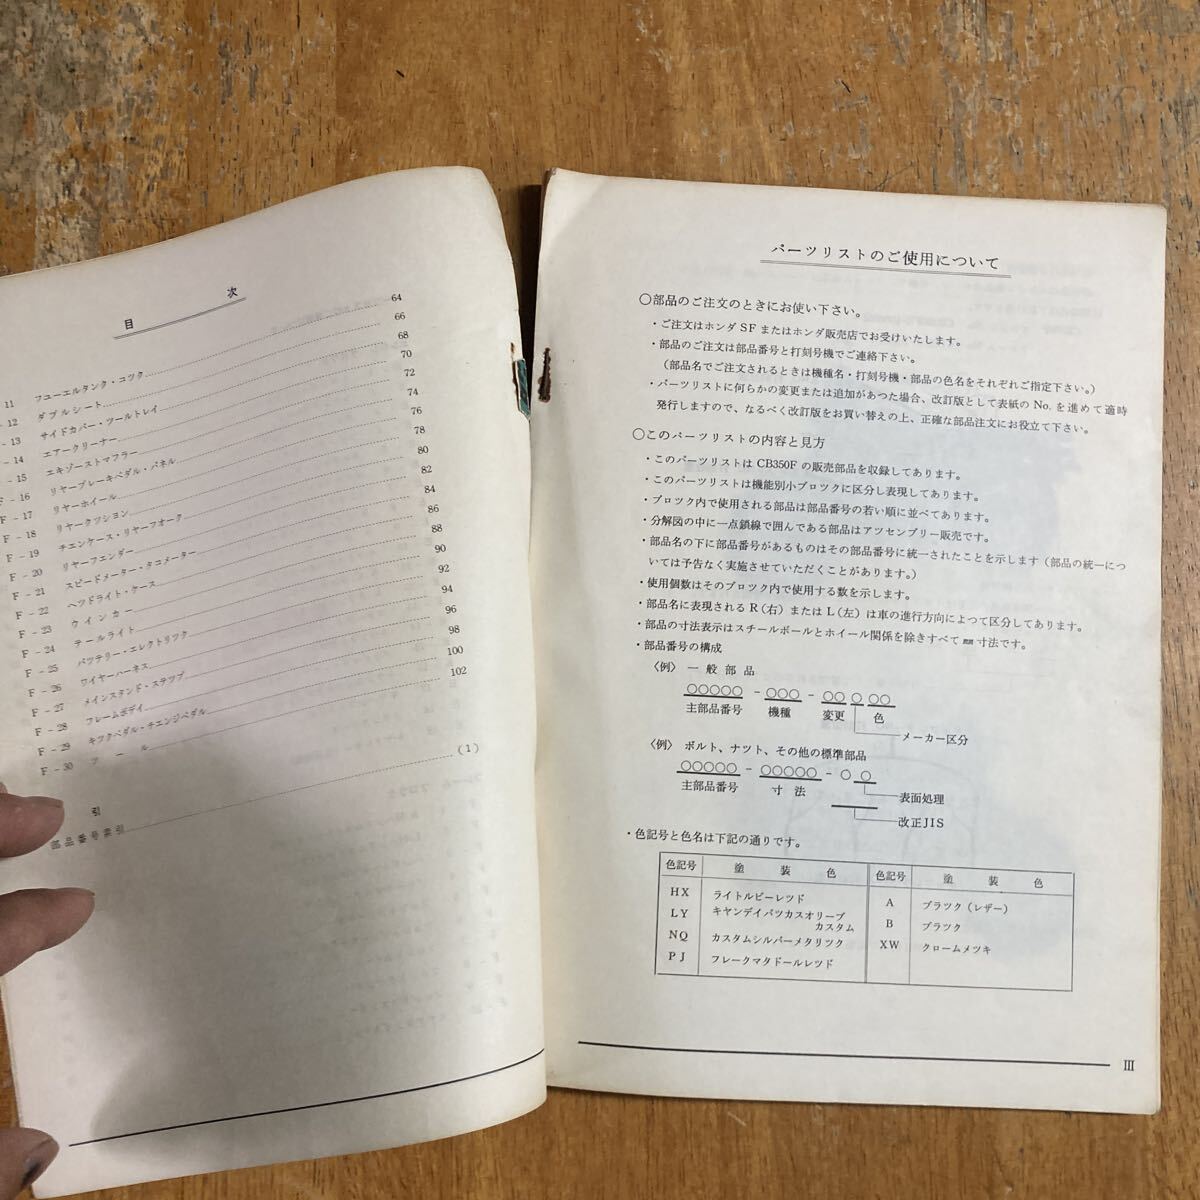 目　次
11 フユーエルタンク・コツク 64
- 12 ダブルシート 66
- 13 サイドカバー・ツールトレイ 68
- 14 エアークリーナー 70
- 15 エキゾーストマフラー 72
F - 16 リヤーブレーキペダル・パネル 74
F - 17 リヤーホイール 76
F - 18 リヤークツシヨン 78
F - 19 チエンケース・リヤーフオーク 80
F - 20 リヤーフエンダー 82
F - 21 スピードメーター・タコメーター 84
F - 22 ヘツドライト・ケース 86
F - 23 ウインカー 88
F - 24 テールライト 90
F - 25 バツテリー・エレクトリツク 92
F - 26 ワイヤーハーネス 94
F - 27 メインスタンド・ステツプ 96
F - 28 フレームボデイ 98
F - 29 キツクペダル・チエンジペダル 100
F - 30 ツール 102
引
部品番号索引 (1)
パーツリストのご使用について
○部品のご注文のときにお使い下さい。
・ご注文はホンダ SF またはホンダ販売店でお受けいたします。
・部品のご注文は部品番号と打刻号機でご連絡下さい。
（部品名でご注文されるときは機種名・打刻号機・部品の色名をそれぞれご指定下さい。）
・パーツリストに何らかの変更または追加があつた場合、改訂版として表紙の No. を進めて適時
発行しますので、なるべく改訂版をお買い替えの上、正確な部品注文にお役立て下さい。
○このパーツリストの内容と見方
・このパーツリストは CB350F の販売部品を収録してあります。
・このパーツリストは機能別小ブロツクに区分し表現してあります。
・ブロツク内で使用される部品は部品番号の若い順に並べてあります。
・分解図の中に一点鎖線で囲んである部品はアツセンブリー販売です。
・部品名の下に部品番号があるものはその部品番号に統一されたことを示します（部品の統一につ
いては予告なく実施させていただくことがあります。）
・使用個数はそのブロツク内で使用する数を示します。
・部品名に表現される R（右）または L（左）は車の進行方向によつて区分してあります。
・部品の寸法表示はスチールボールとホイール関係を除きすべて ㎜ 寸法です。
・部品番号の構成
〈例〉 一 般 部 品
○○○○○ - ○○○ - ○○ ○ ○○
主部品番号　機種　変更　色
メーカー区分
〈例〉 ボルト、ナツト、その他の標準部品
○○○○○ - ○○○○○ - ○ ○
主部品番号　寸 法　表面処理
改正JIS
・色記号と色名は下記の通りです。
色記号　塗 装 色　色記号　塗 装 色
HX　ライトルビーレツド　A　ブラツク（レザー）
LY　キヤンデイバツカスオリーブ　B　ブラツク
カスタム
NQ　カスタムシルバーメタリツク　XW　クロームメツキ
PJ　フレークマタドールレツド
Ⅲ